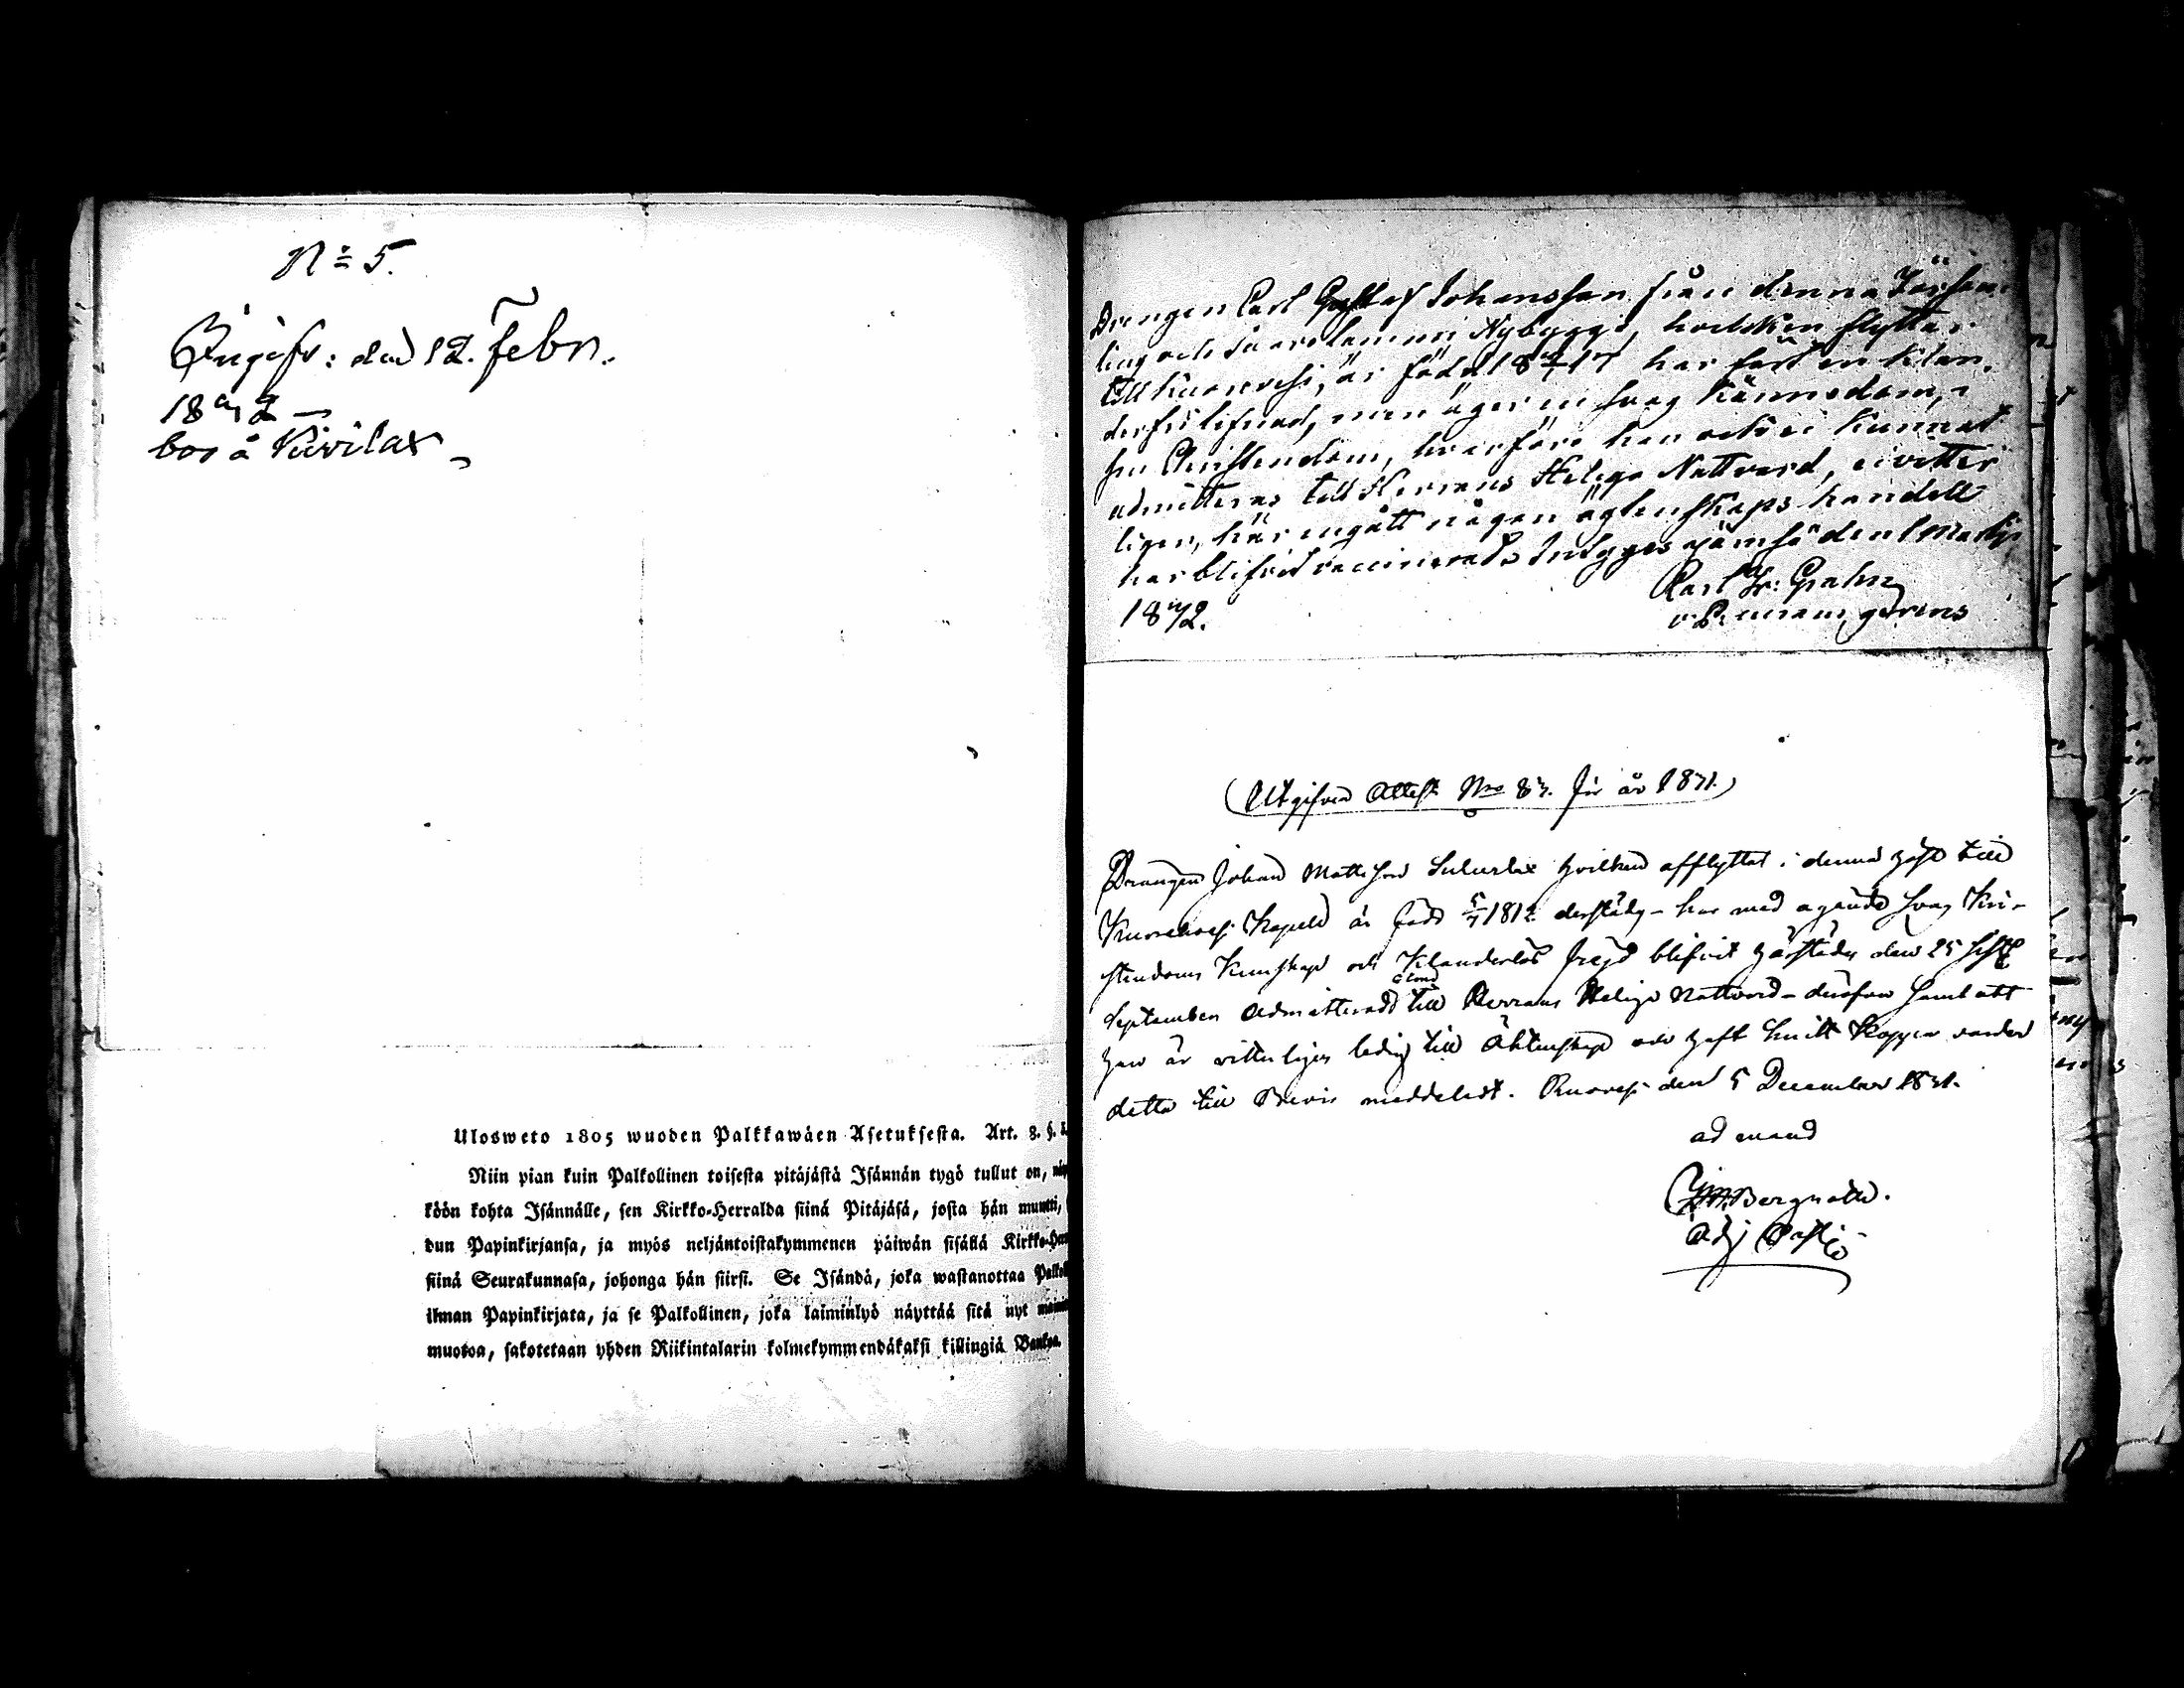 No 5.
Ingifv: den 12. Febr.
1832
bor å Kivilax
Ulosweto 1805 wuoden Palkkawäen Asetuksesta. Art. 8. §.
Niin pian kuin Palkollinen toisesta pitäjästä Isännän tygö tullut on,
köön kohta Isännälle, sen Kirkko-Herralda siinä Pitäjäsä, josta hän muutti,
dun Papinkirjansa, ja myös neljäntoistakymmenen päiwän sisällä
siinä Seurakunnasa, johonga hän siirsi. Se Isändä, joka wastanottaa
ilman Papinkirjata, ja se Palkollinen, joka laiminlyö näyttää sitä nyt
muotoa, sakotetaan yhden Riikintalarin kolmekymmendäkaksi killingiä Bankos.
Drengen Carl Gustaf Johansson från denna Församling
och Nybygge, hvilken flyttar
till Kuorevesi, är född har fört en klan-
derfri lefnad, men äger en svag kännedom, i
sin Christendom, hvarföre han ock ei kunnat
admitteras till Herrans Heliga Nattvard, ei vetter-
ligen, här ingått någon ägtenskaps handell
har blifvit vaccinerad. Intygas den 1 Martii
1832.
Carl Fr: Grahn
v. P. curam gerens
(Utgifven Attest No 83. för år 1831.)
Drängen Johan Mattsson hvilken afflyttat i denna höst till
Kuorevesi Kapell är född 1812 derstädes har med ägande svag Kri-
stendoms Kunskap och Klanderlös frejd blifvit härstädes den 25 sistl
September Admitterad till Herrans Heliga Nattvard - hvarföre samt att
han är vitterligen ledig till Äktenskap och haft Koppor varder
detta till Bevis meddelat. Ruovesi den 5 December 1831.
ad mand
Bergroth.
Adj Past